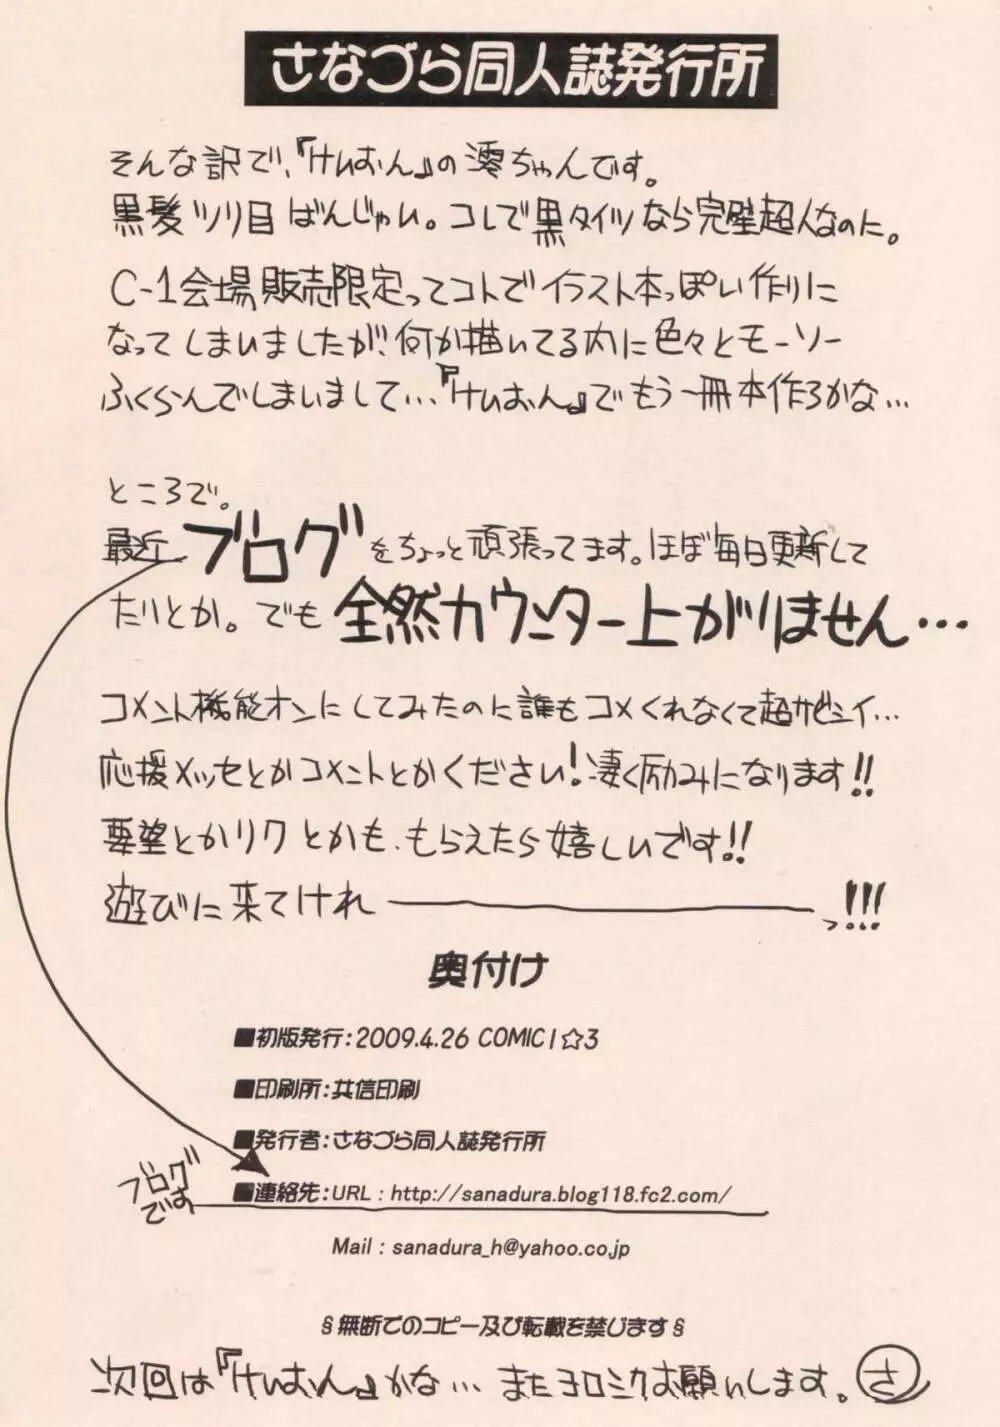 さなづら同人誌発行所
そんな訳で、『けいおん』の澪ちゃんです。
黒髪ツリ目ばんじゃい。コレで黒タイツなら完璧超人なのに。
C-1会場販売限定ってコトでイラスト本っぽい作りに
なってしまいましたが!何か描いてる内に色々とモーソー
ふくらんでしまいまして…『けいおん』でもう一冊本作ろかな…
ところで。
最近ブログをちょっと頑張ってます。ほぼ毎日更新して
たりとか。でも全然カウンター上がりません…
コメント機能オンにしてみたのに誰もコメくれなくて超サビシイ…
応援メッセとかコメントとかください!凄く励みになります!!
要望とかリクとかも、もらえたら嬉しいです!!
遊びに来てけれ――――――っ!!!
奥付け
■初版発行:2009.4.26 COMIC1☆3
■印刷所:共信印刷
■発行者:さなづら同人誌発行所
■連絡先:URL : http://sanadura.blog118.fc2.com/
ブログです
Mail : sanadura_h@yahoo.co.jp
§無断でのコピー及び転載を禁じます§
次回は『けいおん』かな…またヨロシクお願いします。さ